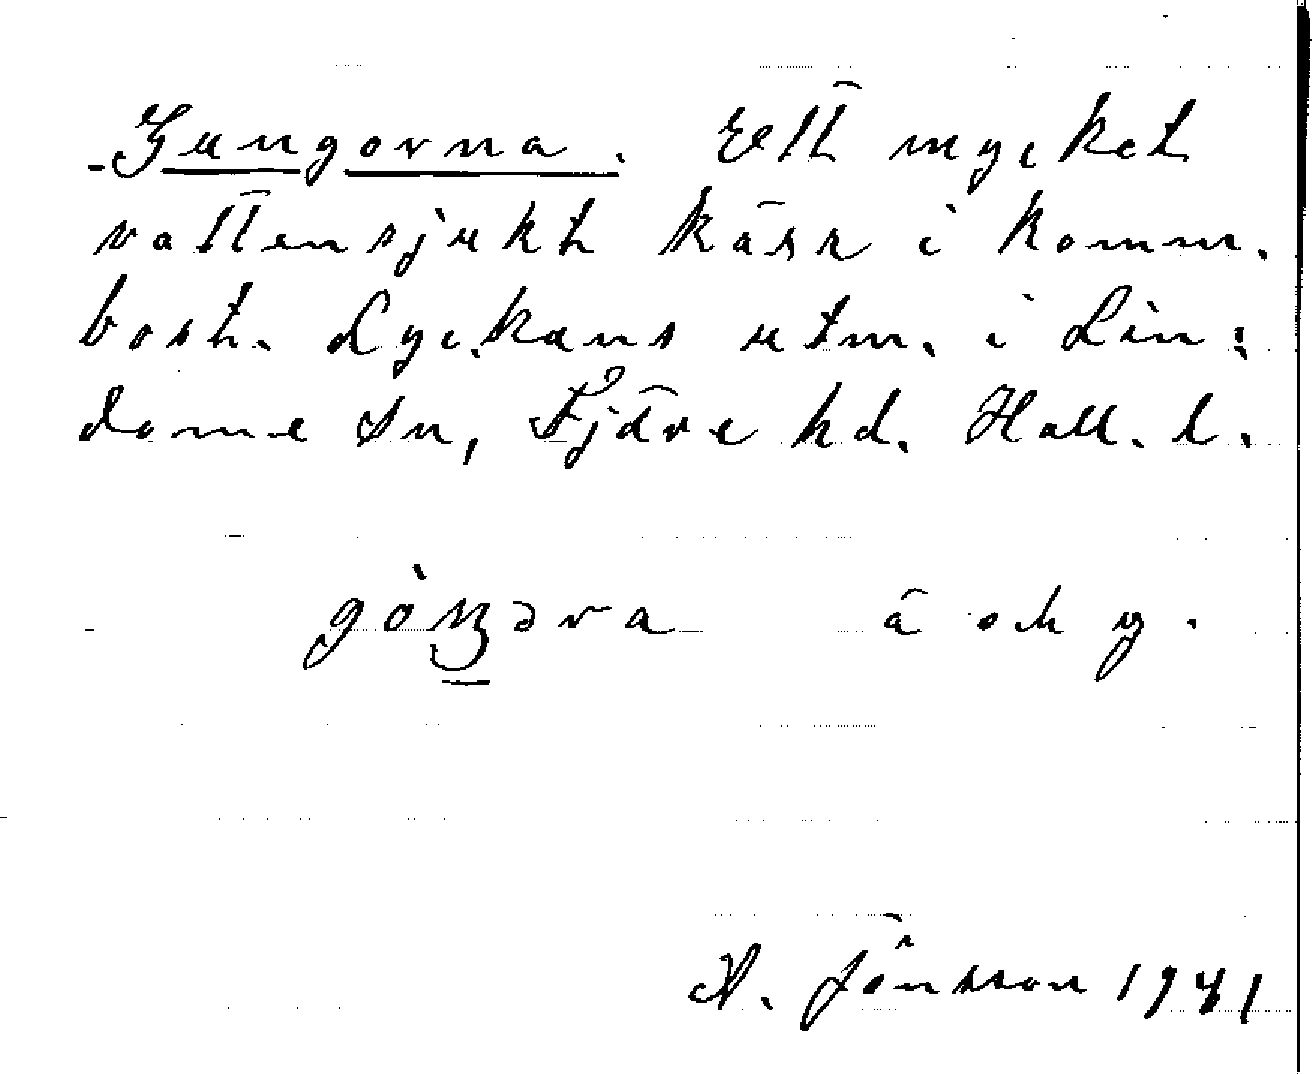 Gungorna. Ett mycket
vattensjukt kärr i komm.
bost. Lyckans utm. i Lin:
dome sn, Fjäre hd. Hall. l.
ä och y.
A. Jönsson 1941